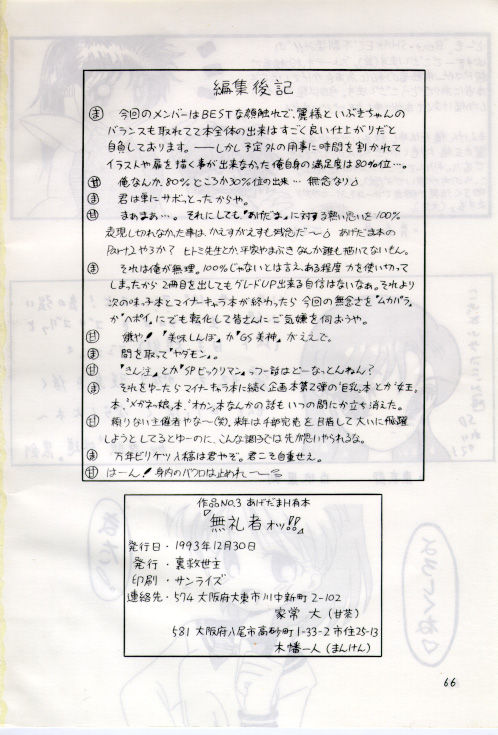 編集後記
ま 今回のメンバーはBESTな顔触れで、麗様といぶきちゃんの
バランスも取れてて本全体の出来はすごく良い仕上がりだと
自負しております。――しかし予定外の用事に時間を割かれて
イラストや扉を描く事が出来なかた俺自身の満足度は80%位…。
甘 俺なんか、80%ところか30%位の出来… 無念なり
ま 君は単にサボッとったからや。
甘 まぁまぁ…。それにしても、『あげだま』に対する熱い思いを100%
表現し切れなかった事は、かえすがえすも残念だ〜 あげだま本の
Part2やろか? ヒトミ先生とか、平家いぶきなんか誰も描いてないもん。
ま それは俺が無理。100%じゃないとは言え、ある程度力を使い切って
しまったから2冊目を出してもグレードUP出来る自信はないなぁ。それより
次の味っ子本とマイナーキャラ本が終わったら今回の無念さを『ムカパラ』
か『ヘポイ』にでも転化して皆さんにご気嫌を伺おうや。
甘 嫌や! 『美味しんぼ』か『GS美神』がええで。
ま 間を取って『ヤダモン』。
甘 『きん注』とか『SPビックリマン』っつー話はどーなっとんねん?
ま それをゆーたらマイナーキャラ本に続く企画本第2弾の『巨乳』本とか『女王』
本、『メガネっ娘』本、『オカン』本なんかの話もいつの間にか立ち消えた。
甘 頼りない主催者やな〜(笑)、来年は千部完売を目指して大いに飛躍
しようとしてるとゆーのに、こんな調子では先が思いやられるな。
ま 万年ビリケツ入稿は君やぞ。君こそ自重せえ。
甘 はーん! 身内のバクロは止めれーー
作品NO.3 あげだまH有本
『無礼者オッ!!』
発行日・1993年12月30日
発行・裏救世主
印刷・サンライズ
連絡先・574 大阪府大東市川中新町2-102
家常 大(甘茶)
581 大阪府八尾市高砂町1-33-2市住25-13
木幡一人(まんけん)
66